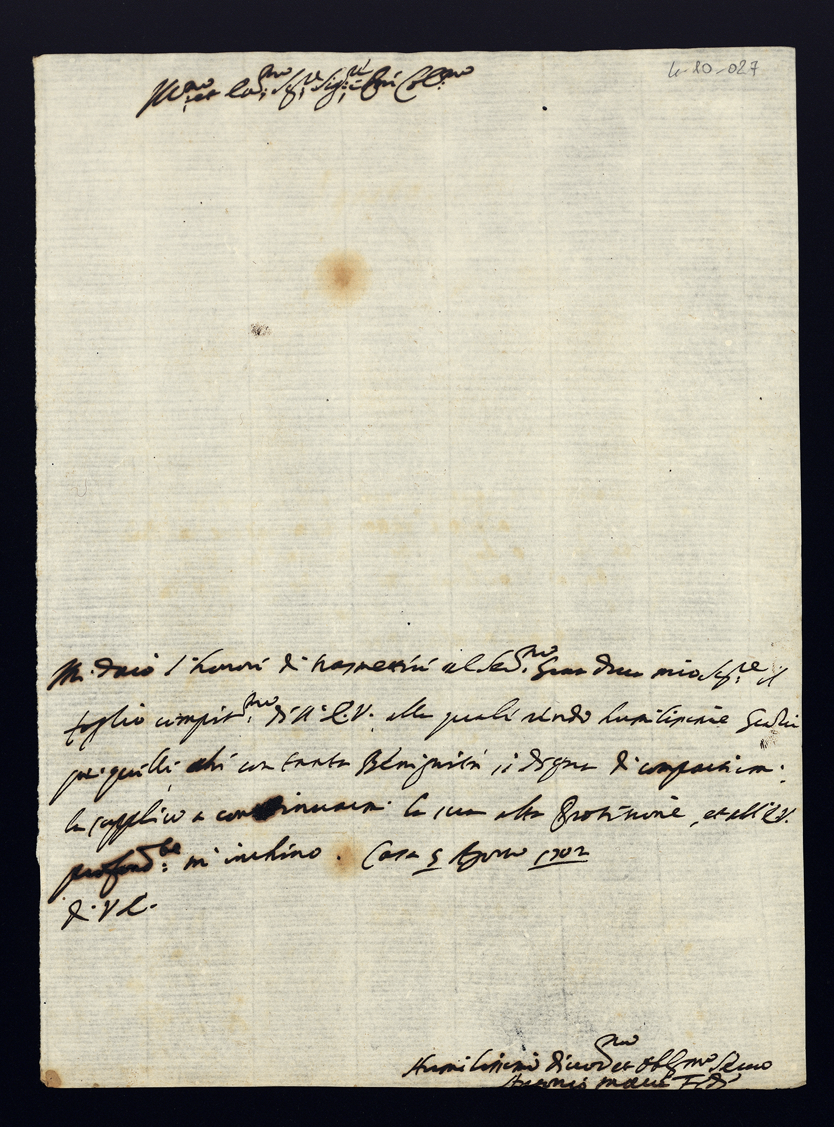 Ill.mo et Ecc.mo Sig.re Sig.re e Pron Col.mo
4-20-027
Mi darò l'honore di trasmettere al Ser.mo Gran Duca mio Sig.re il
foglio compit.mo di V: E. V. alla quale rendo humilissime Gratie
per quelle che con tanta Benignità si degna di compartirmi:
la supplico a continuarmi la sua alta Protettione, et all'E.V.
profond.te m'inchino. Casa 5 Agosto 1702
di V E.
Humilissimo Divot.mo et Obblig.mo Servo
Antonio Maria Fedi